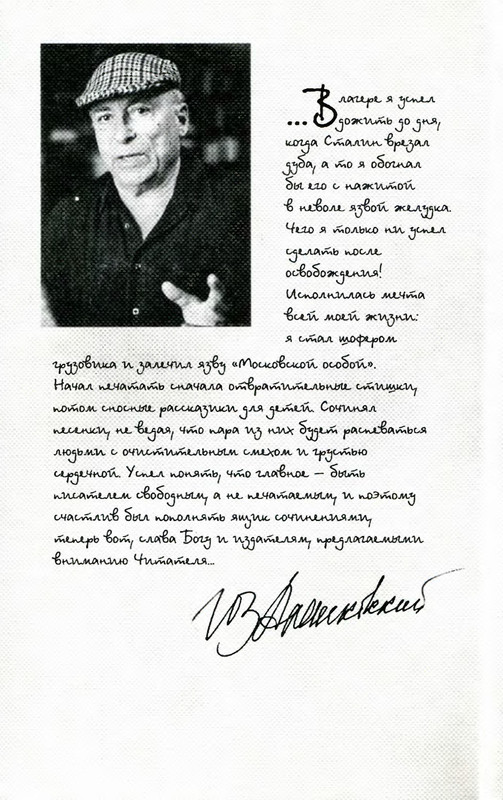 ...В лагере я успел
дожить до дня,
когда Сталин врезал
дуба, а то я обогнал
бы его с нажитой
в неволе язвой желудка.
Чего я только ни успел
сделать после
освобождения!
Исполнилась мечта
всей моей жизни:
я стал шофером
грузовика и залечил язву «Московской особой».
Начал печатать сначала отвратительные стишки,
потом сносные рассказики для детей. Сочинял
песенки, не ведая, что пара из них будет распеваться
людьми с очистительным смехом и грустью
сердечной. Успел понять, что главное – быть
писателем свободным, а не печатаемым, и поэтому
счастлив был пополнять ящик сочинениями,
теперь вот, слава Богу и издателям, предлагаемыми
вниманию Читателя...
Юз Алешковский